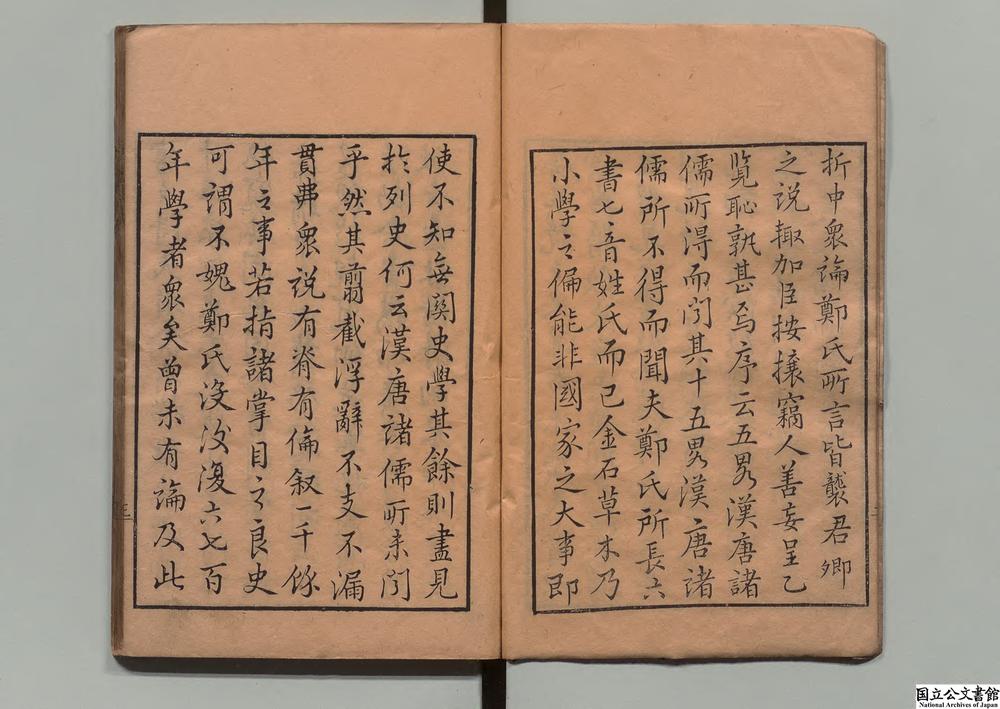 折中衆論鄭氏所言皆襲君卿
之說輙加臣按攘竊人善妄呈乙
覽恥孰甚焉序云五畧漢唐諸
儒所淂而闻其十五畧漢唐諸
儒所不得而聞夫鄭氏所長六
書七音姓氏而已金石草木乃
小學之偏能非國家之大事即
使不知無関史學其餘則盡見
扵列史何云漢唐諸儒所未闻
乎然其翦截浮辭不支不漏
貫弗衆説有脊有倫叙一千餘
年之事若指諸掌目之良史
可謂不媿鄭氏没後復六七百
年學者衆矣曾未有論及此
二
三
国立公文書館
National Archives of Japan